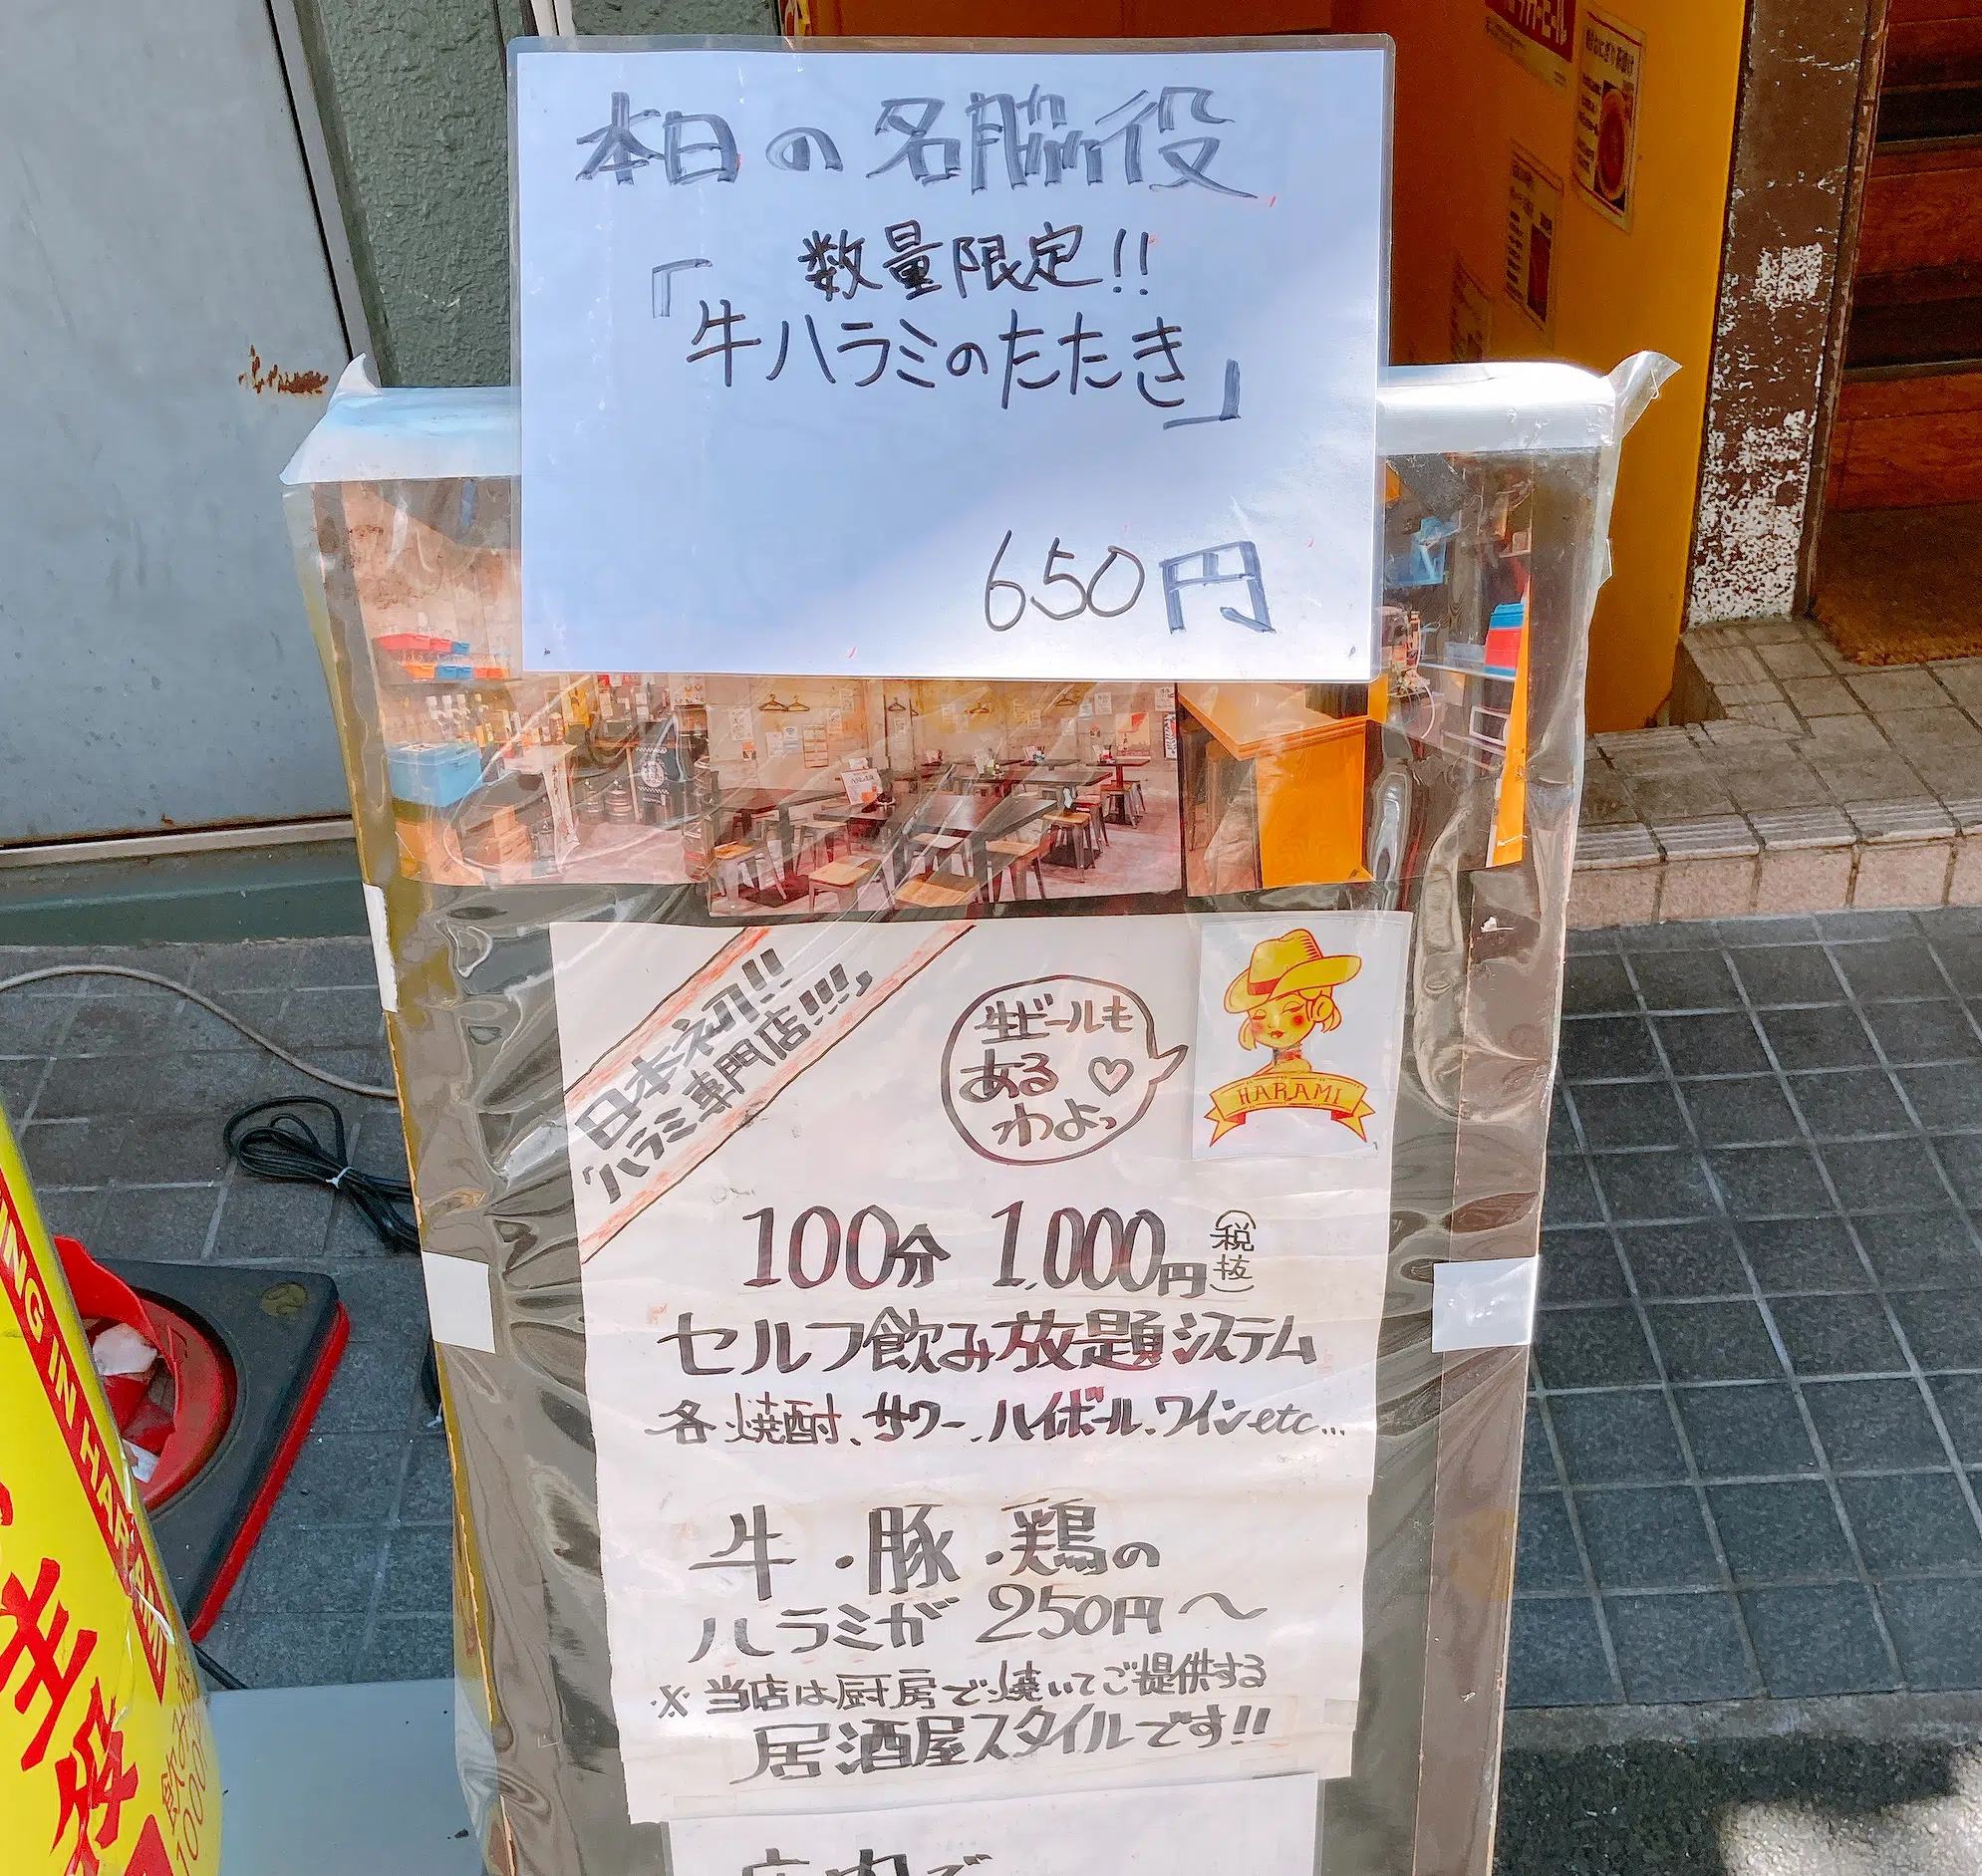 本日の名脇役
数量限定!!
「牛ハラミのたたき」
650円
日本初!!
「ハラミ専門店!!!」
生ビールも
ある♡
わよっ
HARAMI
100分 1,000円(税抜)
セルフ飲み放題システム
各焼酎、サワー、ハイボール、ワインetc...
牛・豚・鶏の
ハラミが250円〜
※当店は厨房で焼いてご提供する
居酒屋スタイルです!!
ING IN HARAMI
主役
飲み放
1000